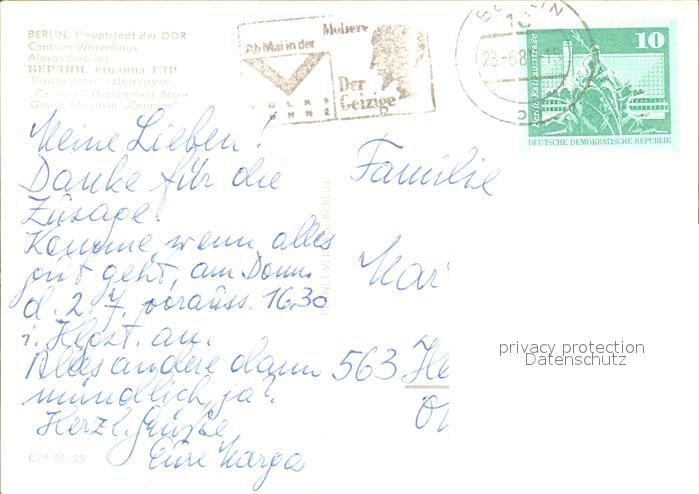 BERLIN, Hauptstadt der DDR
Centrum-Warenhaus
Alexanderplatz
БЕРЛИН, столица ГДР
Универмаг „Центрум"
„Centrum" Department Store
Grand Magasin „Centrum"
Ab Mai in der
VOLKS
BÜHNE
Moliere
Der
Geizige
BERLIN
10
DEUTSCHE DEMOKRATISCHE REPUBLIK
Meine Lieben!
Danke für die
Zusage.
Komme, wenn alles
gut geht, am Donn.
d. 2. 7. vorauss. 16.30
i. Hbst. an.
Alles andere dann
mündlich, ja?
Herzl. Grüße
Eure Marga
EVP M -,25
VERLAG BERLIN
Familie
563
privacy protection
Datenschutz